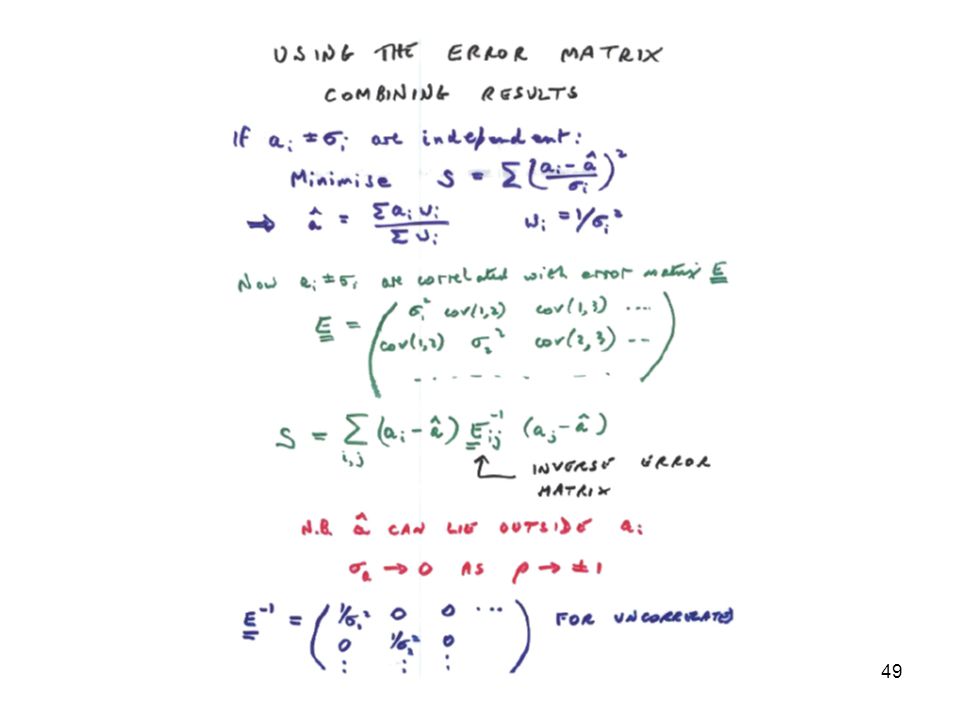 USING THE ERROR MATRIX
COMBINING RESULTS
If aᵢ ± σᵢ are independent:
Minimise S = Σ((aᵢ - â)/σᵢ)²
⇒ â = Σaᵢwᵢ / Σwᵢ   wᵢ = 1/σᵢ²
Now aᵢ ± σᵢ are correlated with error matrix E
E = ( σ₁² cov(1,2) cov(1,3) ....
cov(1,2) σ₂² cov(2,3) --
. - . - . . . . . . )
S = Σ i,j (aᵢ - â) E⁻¹ij (aj - â)
INVERSE ERROR
MATRIX
N.B. â CAN LIE OUTSIDE aᵢ
σₐ → 0 AS ρ → ±1
E⁻¹ = ( 1/σ₁² 0 0 ... FOR UNCORRELATED
0 1/σ₂² 0
⋮ ⋮ ⋮ )
49